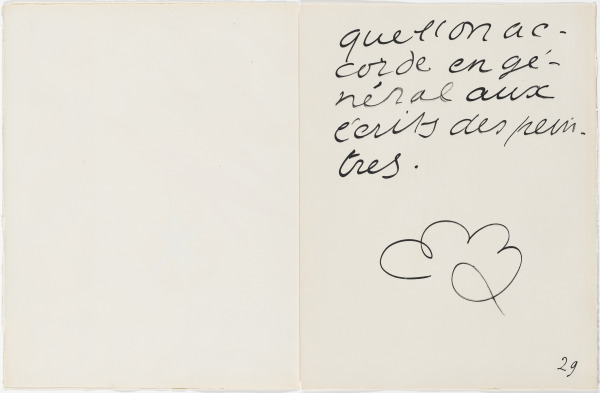 que l'on ac-
corde en gé-
néral aux
écrits des pein-
tres.
29